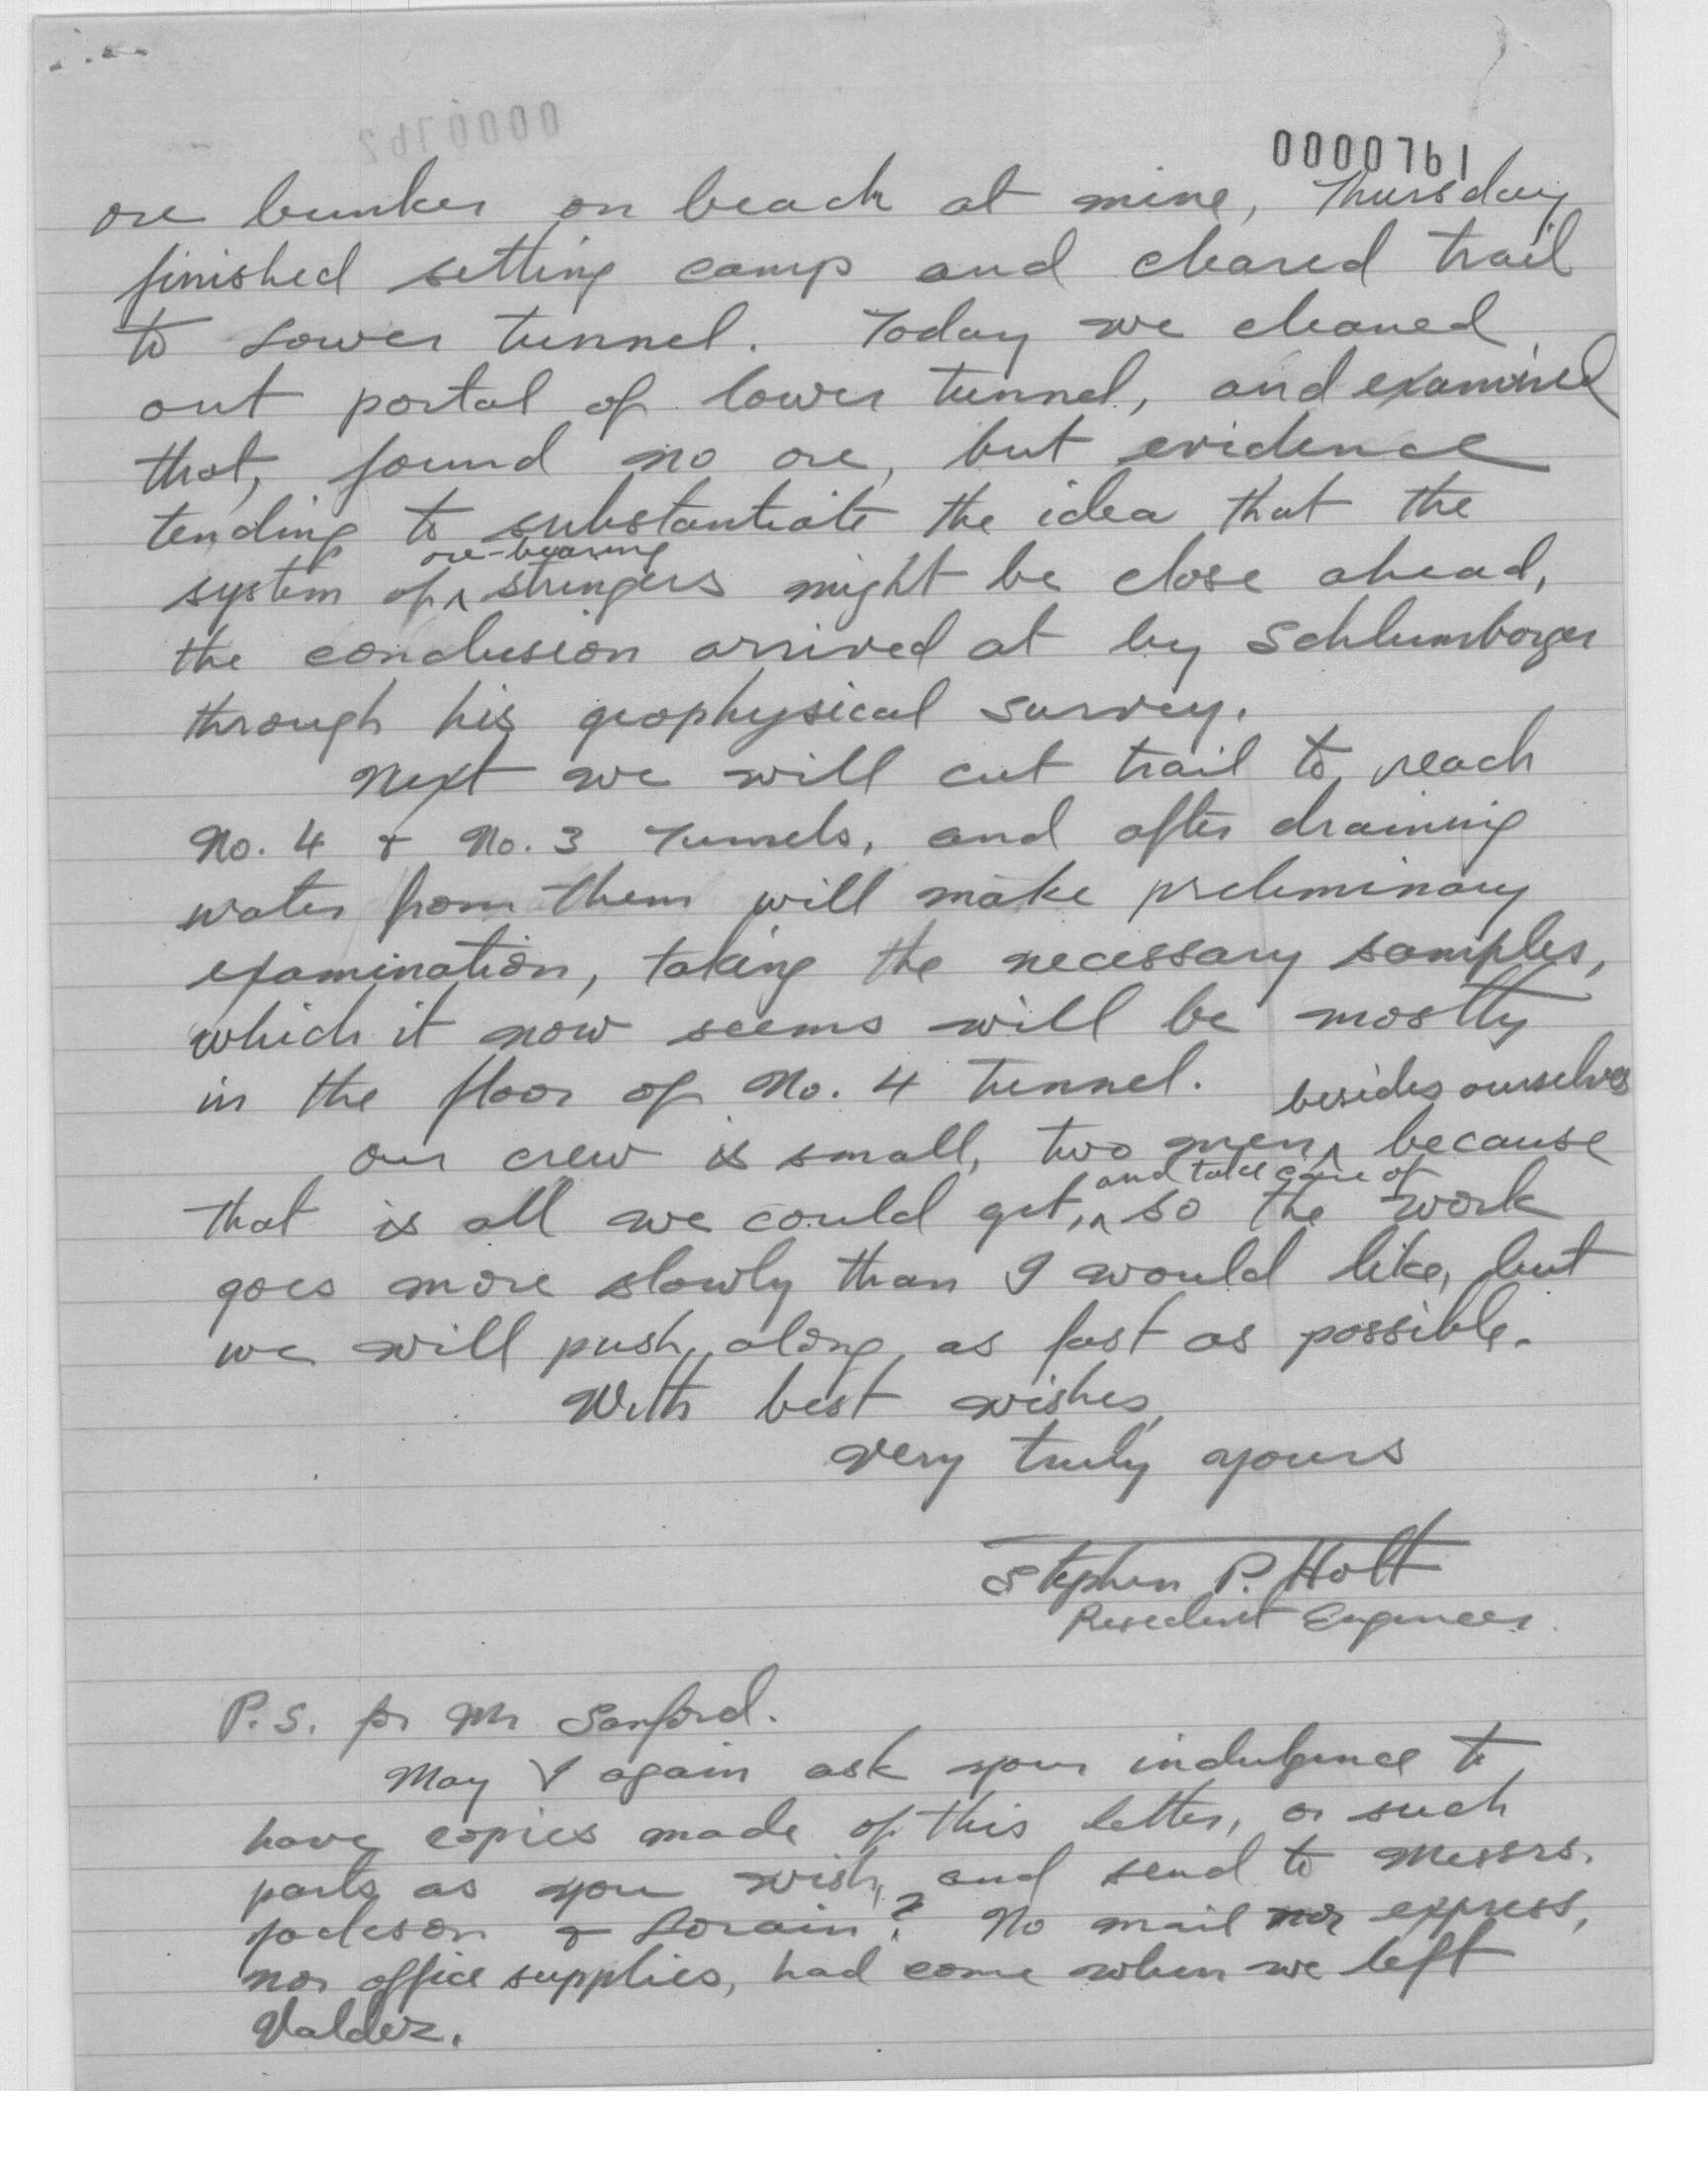 0000762
0000761
ore bunker on beach at mine, Thursday
finished setting camp and cleared trail
to Lower tunnel. Today we cleaned
out portal of lower tunnel, and examined
that, found no ore, but evidence
tending to substantiate the idea that the
ore-bearing
system of ^ stringers might be close ahead,
the conclusion arrived at by Schlumberger
through his geophysical survey.
Next we will cut trail to reach
No. 4 & No. 3 Tunnels, and after draining
water from them will make preliminary
examination, taking the necessary samples,
which it now seems will be mostly
in the floor of No. 4 tunnel.
besides ourselves
Our crew is small, two men ^ because
and take care of
that is all we could get, ^ so the work
goes more slowly than I would like, but
we will push along as fast as possible.
With best wishes,
Very truly yours
Stephen P. Holt
Resident Engineer.
P.S. for Mr Sanford.
May I again ask your indulgence to
have copies made of this letter, or such
parts as you wish, and send to Messrs.
Jackson & Lorain? No mail nor express,
nor office supplies, had come when we left
Valdez.